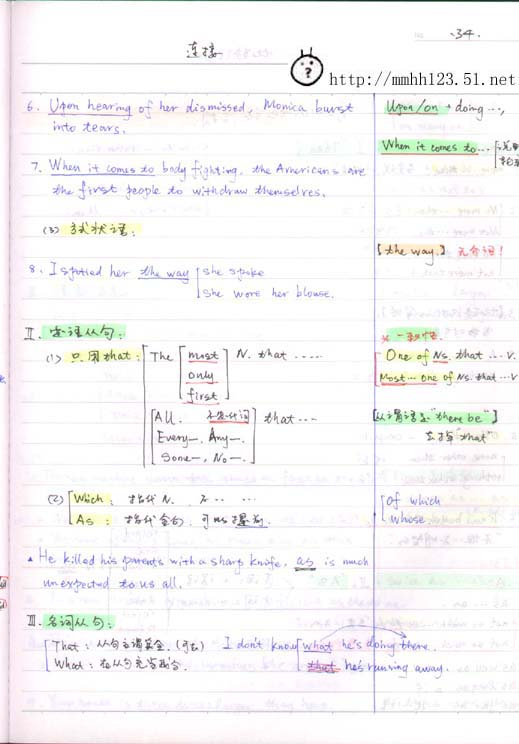 No. -34.
连接
?
http://mmhh123.51.net
6. Upon hearing of her dismissed, Monica burst
into tears.
Upon/on + doing ...,
When it comes to...
7. When it comes to body fighting, the Americans are
the first people to withdraw themselves.
(3) 方式状语:
[the way.] 无介词!
8. I spotted her the way [she spoke
she wore her blouse.
II. 定语从句:
(1) 只用that: The [most
only
first] N. that .....
[All. 不定代词
Every—, Any—.
Some—, No—.] that ...
※ 一致性.
One of Ns. that ... V.
Most... one of Ns. that ...V
[从谓语是"there be"]
"that"
(2) [Which: 指代 N.
As: 指代全句. 可以提前.
[Of which
whose
▲ He killed his parents with a sharp knife, as is much
unexpected to us all.
III. 名词从句:
[That: 从句主谓宾全. (可去)
What: 在从句充当成分.
I don't know [what he's doing there.
that he's running away.